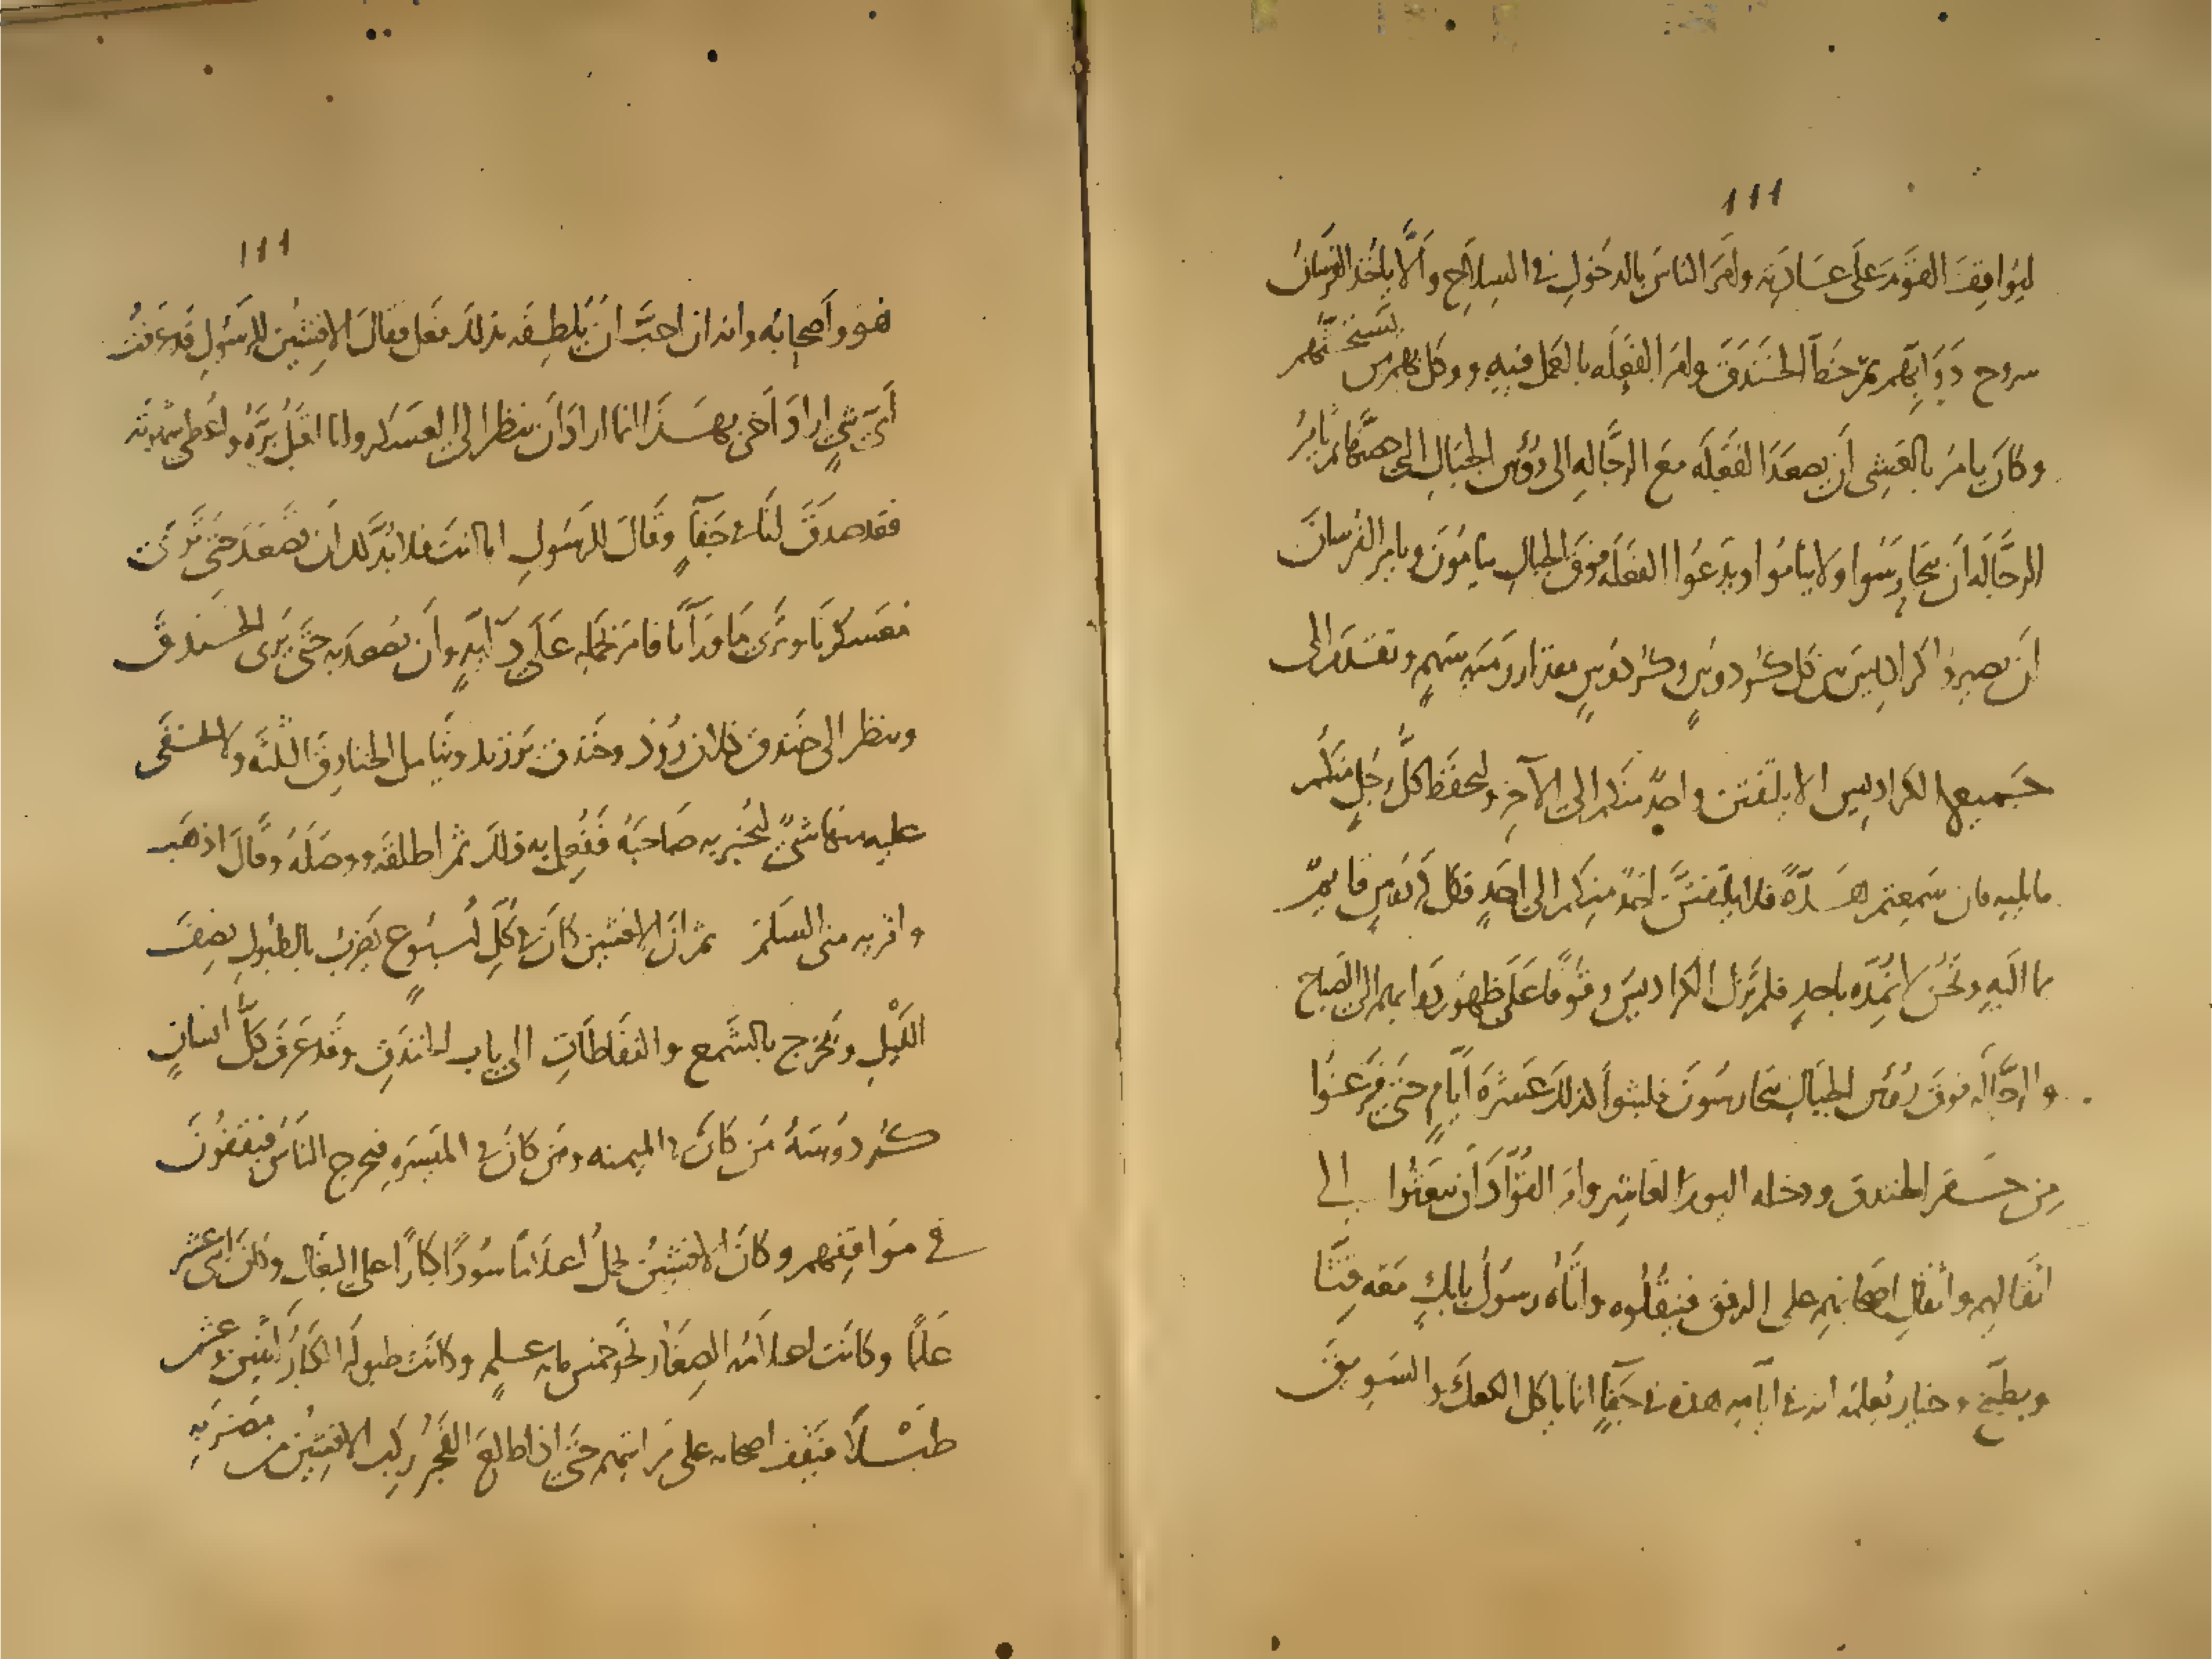 ١١١
ليوافق القوم على عادته وامر الناس بالدخول في السلاح والا ياخذ الفرسان
سروج دوابهم ثم خط الخندق وامر الفعلة بالعمل فيه ووكل بهم من يستحثهم
وكان يامر بالعشي ان يصعد الفعلة مع الرجالة الى رؤس الجبال التي هناك ثم يامر
الرجالة ان يتحارسوا ولا يناموا ويدعوا الفعلة فوق الجبال ينامون ويامر الفرسان
ان يصيروا كراديس بين كل كردوس وكردوس مقدار رمية سهم وتقدم الى
جميع الكراديس الا يلتفتن واحد منكم الى الآخر وليحفظ كل رجل منكم
ما يليه فان سمعتم هدة فلا يلتفتن احد منكم الى احد وكل كردوس قايم
بما اليه ونحن لا نمده باحد فلم يزل الكراديس وقوفا على ظهور دوابهم الى الصباح
والرجالة فوق رؤس الجبال يتحارسون فلبثوا كذلك عشرة ايام حتى فرغوا
من حفر الخندق ودخله اليوم العاشر وامر القواد ان يبعثوا الى
اثقالهم واثقال اصحابهم على الرفق فينقلوه واتاه رسول بابك معه قثا
وبطيخ وخيار يعلمه انه في ايامه هذه في جفا انما ياكل الكعك والسويق
١١١
هو واصحابه وانه ان احب ان يلطفه بذلك فعل فقال الافشين للرسول قد عرفت
اي شي اراد اخي بهذا انما اراد ان ينظر الى العسكر وانا اقبل بره واعطي شهوته
فقد صدق لنا في جفا وقال للرسول اما انت فلا بد لك ان تصعد حتى ترى
معسكرنا وترى ما ورآنا فامر بحمله على دابة وان يصعد به حتى يرى الخندق
وينظر الى خندق كلان روذ وخندق برزند ويتامل الخنادق الثلثة ولا يخفى
عليه منها شي ليخبر به صاحبه ففعل به ذلك ثم اطلقه ووصله وقال اذهب
واقريه مني السلم ثم ان الافشين كان في كل اسبوع يضرب بالطبول نصف
الليل ويخرج بالشمع والنفاطات الى باب الخندق وقد عرف كل انسان
كردوسه من كان في الميمنه ومن كان في الميسره فيخرج الناس فيقفون
في مواقفهم وكان الافشين يحمل اعلاما سودا كبارا على البغال وكان اثنى عشر
علما وكانت اعلامه الصغار نحو خمس مايه علم وكانت طبوله الكبار اثنين وعشر
طبلا فيقف اصحابه على مراتبهم حتى اذا طلع الفجر ركب الافشين من مضربه